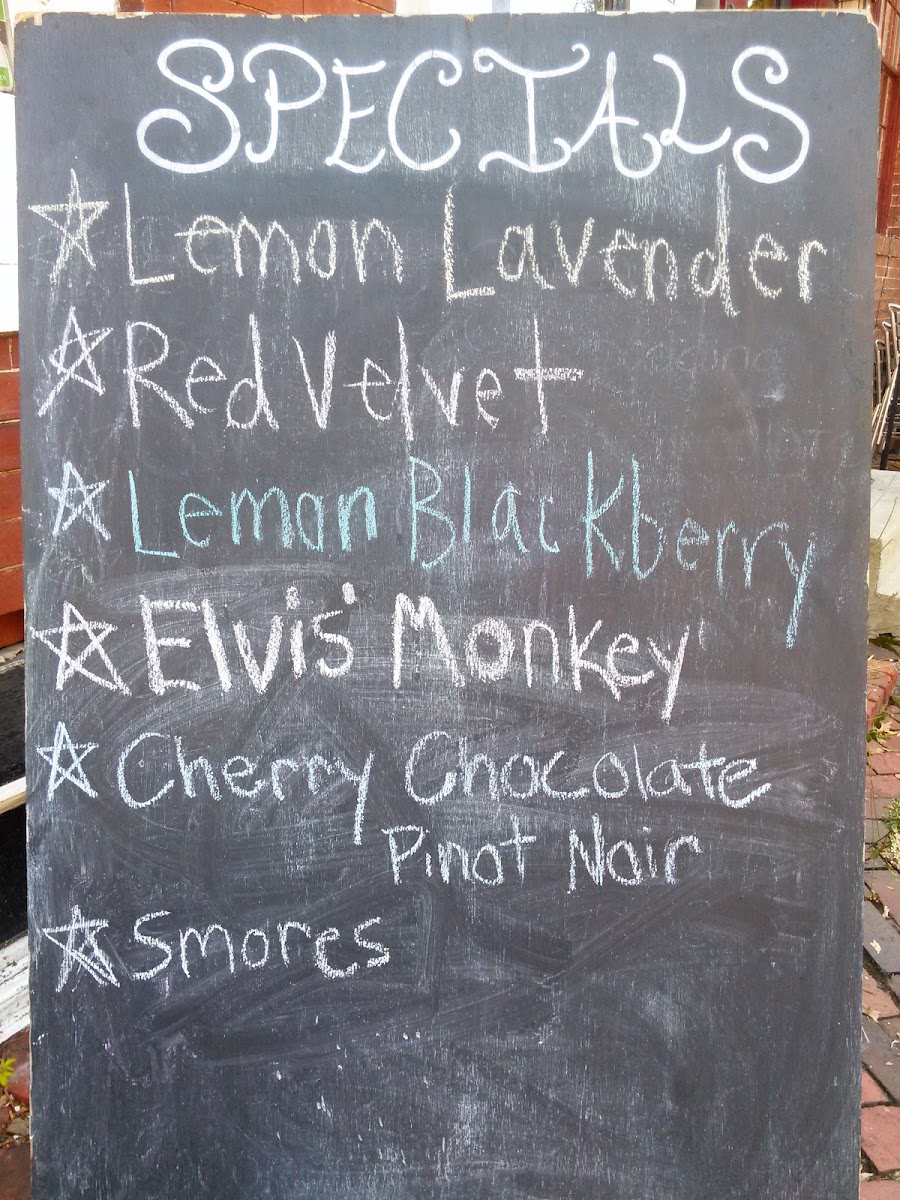 SPECIALS
Lemon Lavender
Red Velvet
Lemon Blackberry
Elvis' Monkey
Cherry Chocolate
Pinot Noir
Smores